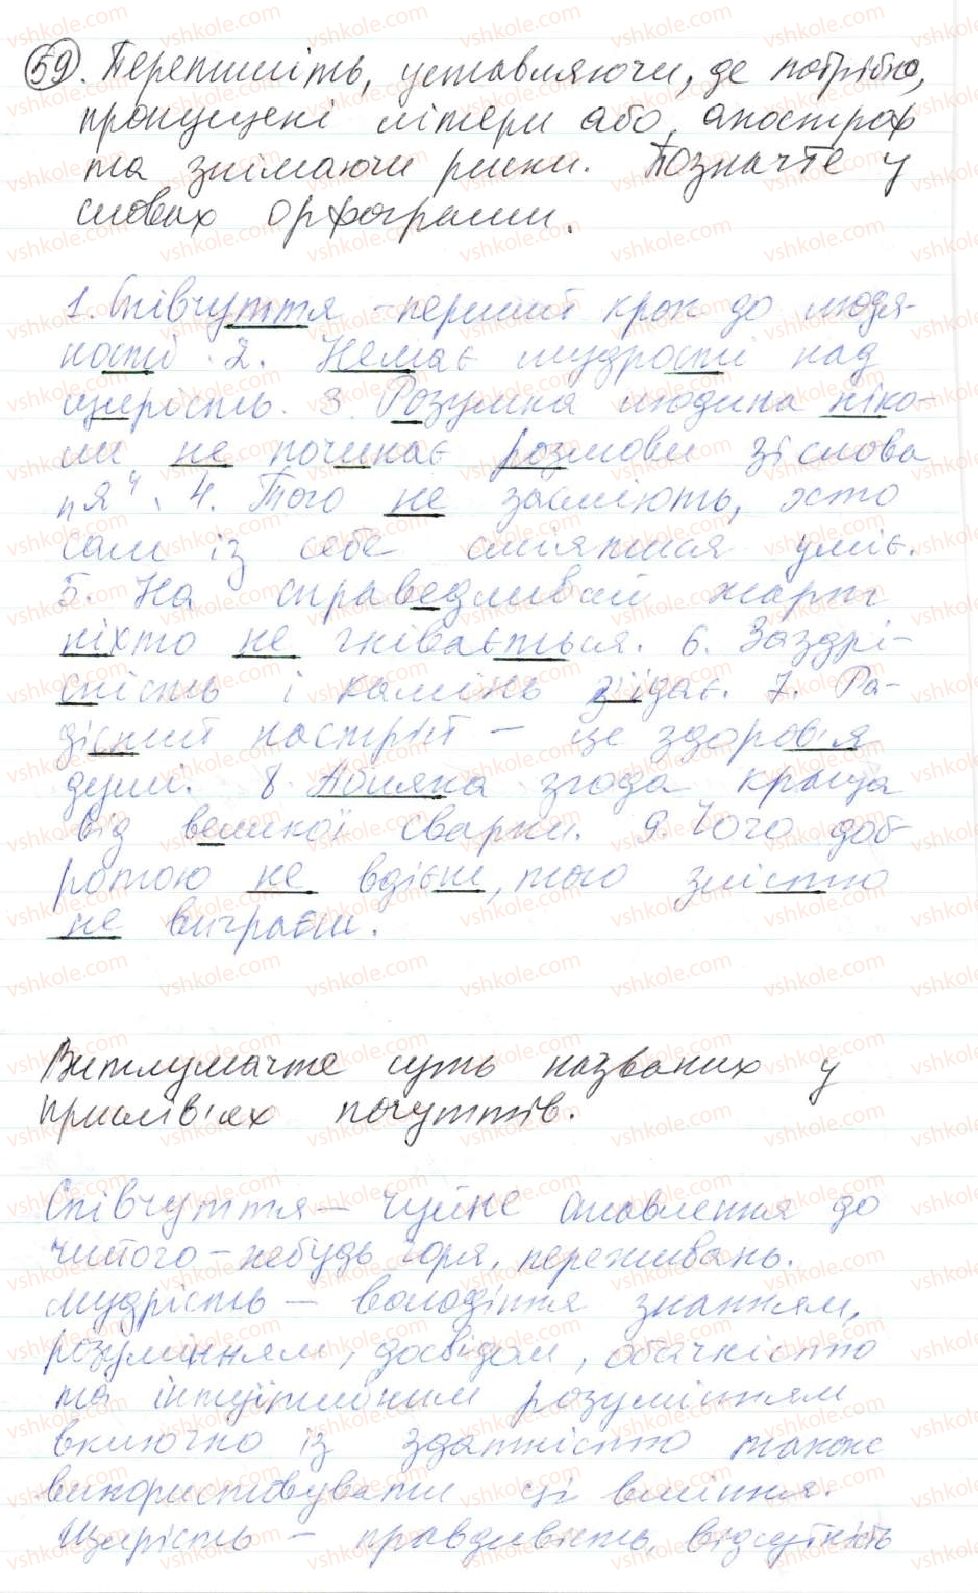 59. Перепишіть, уставляючи, де потрібно,
пропущені літери або, апостроф
та знімаючи риски. Позначте у
словах орфограми.
1. Співчуття - перший крок до людя-
ності. 2. Немає мудрості над
щирість. 3. Розумна людина ніко-
ли не починає розмови зі слова
"я". 4. Того не засміють, хто
сам із себе сміятися уміє.
5. На справедливий жарт
ніхто не гнівається. 6. Заздрі-
сність і камінь з'їдає. 7. Ра-
дісний настрій - це здоров'я
душі. 8. Абияка згода краща
від великої сварки. 9. Чого доб-
ротою не вдієш, того злістю
не виграєш.
Витлумачте суть названих у
прислів'ях почуттів.
Співчуття - чуйне ставлення до
чийого-небудь горя, переживань.
Мудрість - володіння знанням,
розумінням, досвідом, обачністю
та інтуїтивним розумінням
включно із здатністю також
використовувати ці вміння.
Щирість - правдивість, відсутність